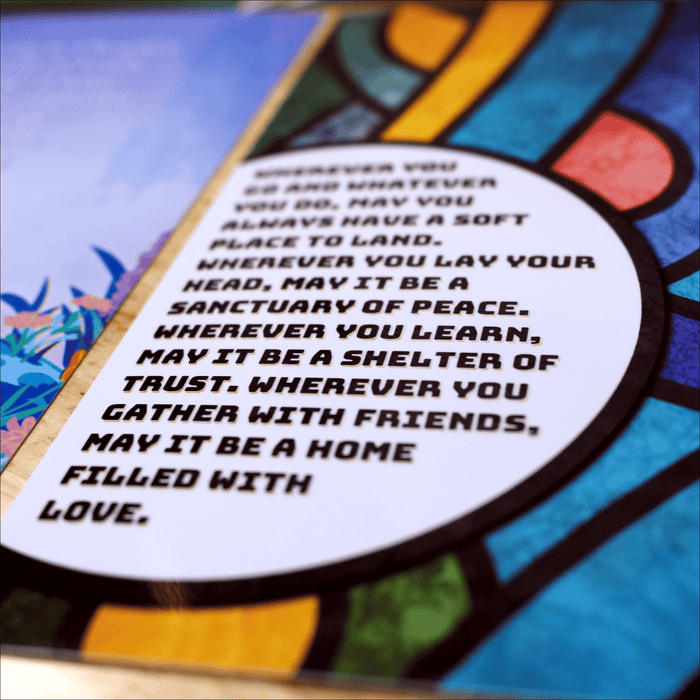 WHEREVER YOU
GO AND WHATEVER
YOU DO, MAY YOU
ALWAYS HAVE A SOFT
PLACE TO LAND.
WHEREVER YOU LAY YOUR
HEAD, MAY IT BE A
SANCTUARY OF PEACE.
WHEREVER YOU LEARN,
MAY IT BE A SHELTER OF
TRUST. WHEREVER YOU
GATHER WITH FRIENDS,
MAY IT BE A HOME
FILLED WITH
LOVE.